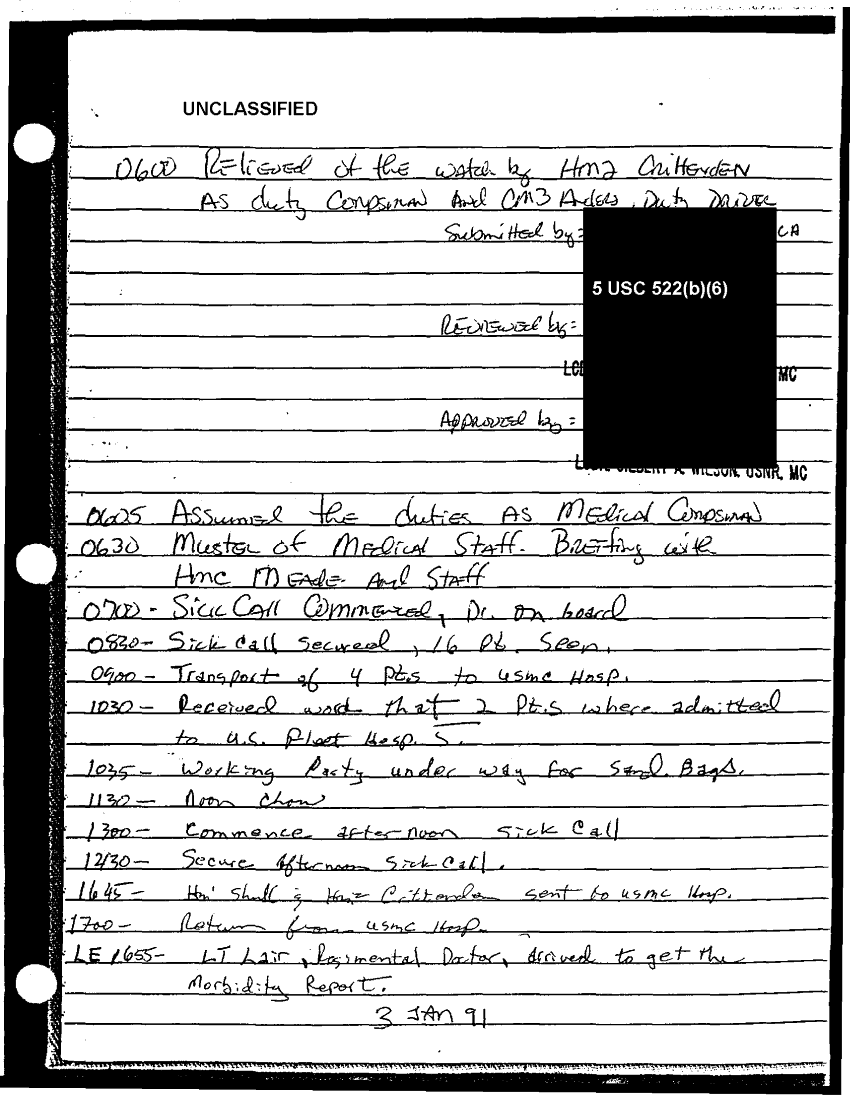 UNCLASSIFIED
0600 Relieved of the watch by HM2 Crittenden
As duty Corpsman And CM3 Duty Driver
Submitted by= CA
5 USC 522(b)(6)
Reviewed by=
LCD MC
Approved by=
A. WILSON, USNR, MC
0625 Assumed the duties As Medical Corpsman
0630 Muster of Medical Staff. Breifing with
Hmc Meade And Staff
0700 - Sick Call Commenced, Dr. on board
0830 - Sick call secured, 16 Pt. Seen.
0900 - Transport of 4 Pts to usmc Hosp.
1030 - Received word that 2 Pt.s where admitted
to U.S. Fleet Hosp. 5.
1035 - Working Party under way for Sand Bags.
1130 - Noon chow
1300 - Commence afternoon sick Call
Secure Afternoon Sick Call.
1645 - sent to usmc Hosp.
1700 - Return from usmc Hosp.
LE 1655 - LT Lair, Regimental Doctor, arrived to get the
Morbidity Report.
3 JAN 91